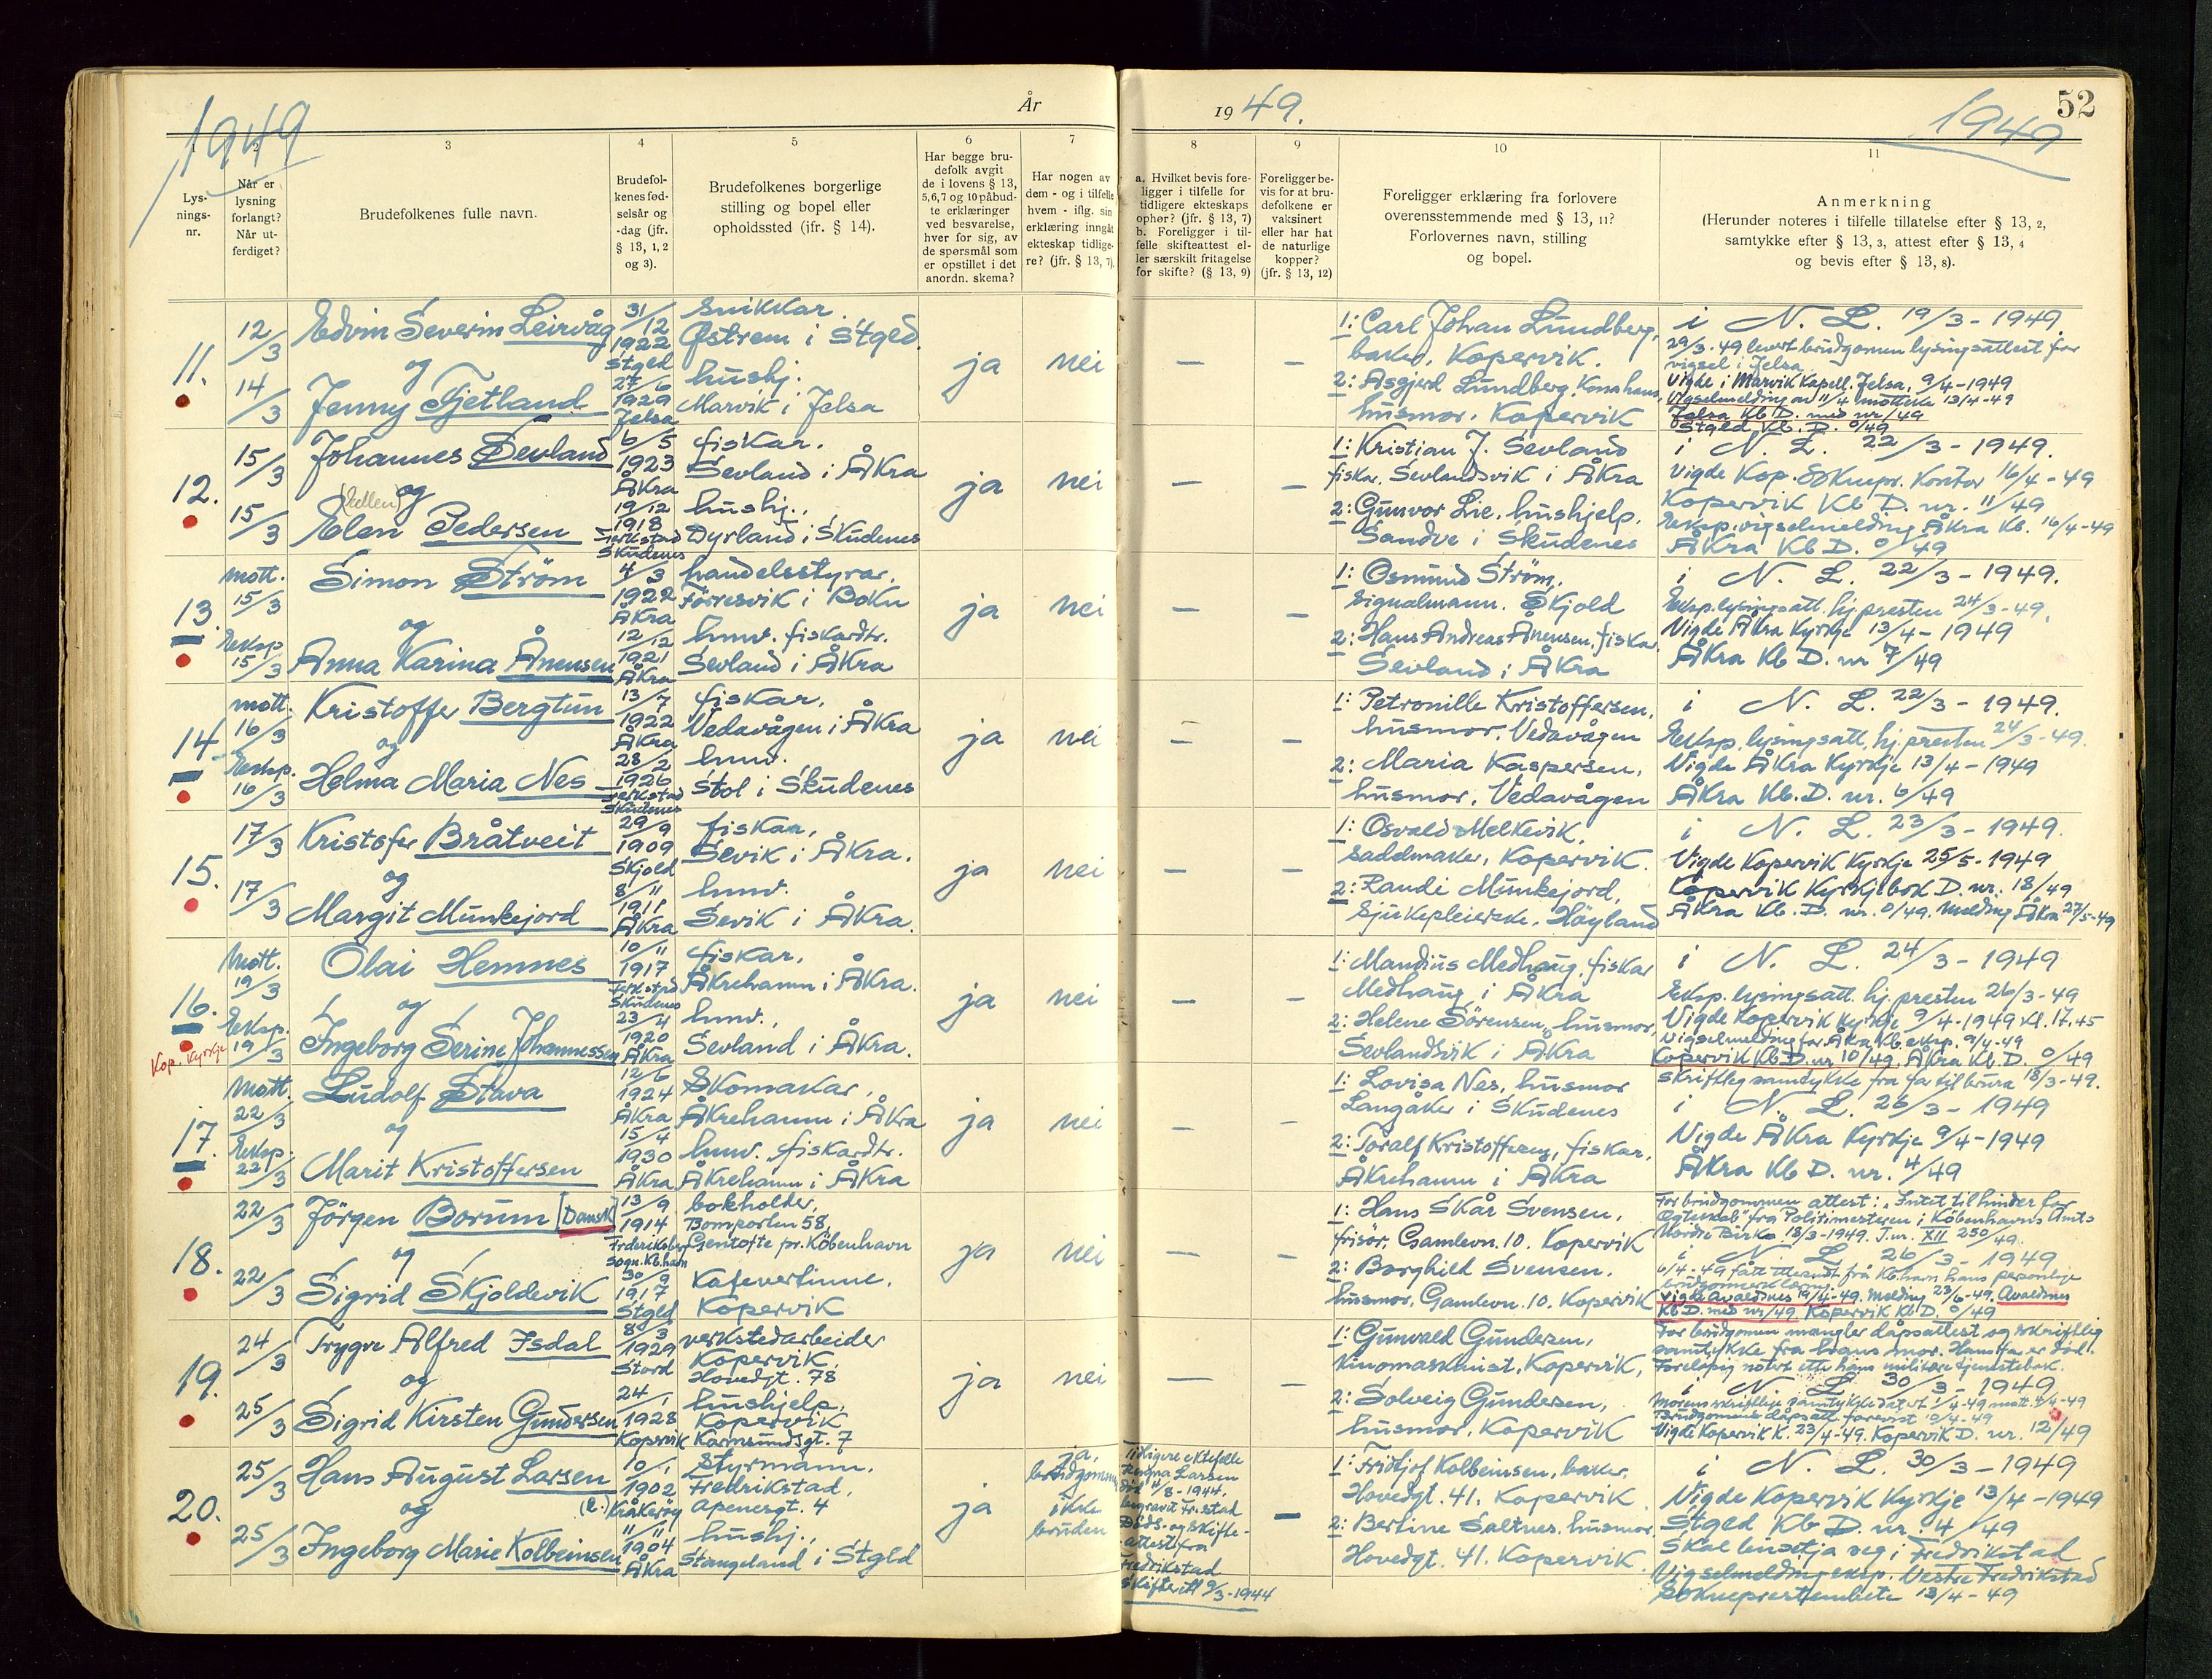 1949
År
19 49.
1949
52
1
2
3
4
5
6
7
8
9
10
11
Lys-
nings-
nr.
Når er
lysning
forlangt?
Når ut-
ferdiget?
Brudefolkenes fulle navn.
Brudefol-
kenes fød-
selsår og
-dag (jfr.
§ 13, 1, 2
og 3).
Brudefolkenes borgerlige
stilling og bopel eller
opholdssted (ifr. § 14).
Har begge bru-
defolk avgit
de i lovens § 13,
5,6,7 og 10 påbud-
te erklæringer
ved besvarelse,
hver for sig, av
de spørsmål som
er opstillet i det
anordn. skema?
Har nogen av
dem - og i tilfelle
hvem - iflg. sin
erklæring inngåt
ekteskap tidlige-
re? (jfr. § 13, 7).
a. Hvilket bevis fore-
ligger i tilfelle for
tidligere ekteskaps
ophør? (jfr. § 13, 7)
b. Foreligger i til-
felle skifteattest el-
ler særskilt fritagelse
for skifte? (§ 13, 9)
Foreligger be-
vis for at bru-
defolkene er
vaksinert
eller har hat
de naturlige
kopper?
(jfr. § 13, 12)
Foreligger erklæring fra forlovere
overensstemmende med § 13, 11?
Forlovernes navn, stilling
og bopel.
Anmerkning
(Herunder noteres i tilfelle tillatelse efter § 13, 2,
samtykke efter § 13, 3, attest efter § 13, 4
og bevis efter § 13, 8).
11.
12/3
14/3
Edvin Severin Leirvåg
og
Jenny Tjetland
31/12
1922
Stgld
27/6
1929
Jelsa
snikkar.
Østrem i Stgld.
hushj.
Marvik i Jelsa
ja
nei
—
—
1: Carl Johan Lundberg,
baker, Kopervik.
2: Asgjerd Lundberg,
husmor. Kopervik
i N. L. 19/3 - 1949.
29/3-49 levert brudgomen lysingsattest for
vigsel i Jelsa.
Vigde i Marvik Kapell, Jelsa, 9/4-1949
Vigselmelding av 11/4 motteke 13/4-49
Jelsa Kb D. med nr/49
Stgld Kb. D. 0/49
12.
15/3
15/3
Johannes Sevland
(Ellen) og
Elen Pedersen
6/5
1923
Åkra
19/12
1918
Ferkstad
Skudenes
fiskar.
Sevland i Åkra
hushj.,
Dyrland i Skudenes
ja
nei
—
—
1: Kristian J. Sevland
fiskar, Sevlandsvik i Åkra
2: Gunvor Lie, hushjelp.
Sandve i Skudenes
i N. L. 22/3 - 1949.
Vigde Kop. Soknepr. Kontor 16/4-49
Kopervik Kb D. nr. 11/49
Eksp. vigselmelding Åkra Kb. 16/4-49
Åkra Kb D. 0/49
13.
mott.
15/3
Eksp
15/3
Simon Ström
og
Anna Karina Ånensen
4/3
1922
Åkra
12/12
1921
Åkra
handelsstyrar.
Førresvik i Bokn
hmv. fiskardtr.
Sevland i Åkra
ja
nei
—
—
1: Osmund Ström,
signalmann. Skjold
2: Hans Andreas Ånensen, fiskar
Sevland i Åkra
i N. L. 22/3 - 1949.
Eksp. lysingsatt. hj. presten 24/3-49.
Vigde Åkra Kyrkje 13/4-1949
Åkra Kb D. nr 7/49
14
mott.
16/3
Eksp.
16/3
Kristoffer Bergtun
og
Helma Maria Nes
13/7
1922
Åkra
28/2
1926
Ferkstad
Skudenes
fiskar,
Vedavågen i Åkra
hmv.
Stol i Skudenes
ja
nei
—
—
1: Petronille Kristoffersen,
husmor, Vedavågen
2: Maria Kaspersen,
husmor, Vedavågen
i N. L. 22/3 - 1949.
Eksp. lysingsatt. hj. presten 24/3-49.
Vigde Åkra Kyrkje 13/4-1949
Åkra Kb. D. nr. 6/49
15.
17/3
17/3
Kristofer Bråtveit
og
Margit Munkejord
29/9
1909
Skjold
8/11
1911
Åkra
fiskar,
Sevik i Åkra.
hmv.
Sevik i Åkra.
ja
nei
—
—
1: Osvald Melkevik,
sadelmaker, Kopervik.
2: Randi Munkejord,
sjukepleierske. Høyland
i N. L. 23/3 - 1949.
Vigde Kopervik Kyrkje 25/5-1949
Kopervik Kyrkjebok D. nr. 18/49
Åkra Kb. D. nr. 0/49. Melding Åkra 27/5-49
16.
Kop. Kyrkje
Mott.
19/3
Eksp.
19/3
Olai Hemnes
og
Ingeborg Serine Johannessen
10/11
1917
Ferkstad
Skudenes
23/4
1920
Åkra
fiskar,
Åkrehamn i Åkra.
hmv.,
Sevland i Åkra.
ja
nei
—
—
1: Mandius Medhaug, fiskar
Medhaug i Åkra
2: Helene Sørensen, husmor,
Sevlandsvik i Åkra
i N. L. 24/3 - 1949
Eksp. lysingsatt. hj. presten 26/3-49
Vigde Kopervik Kyrkje 9/4-1949 Kl. 17,45
Vigselmelding for Åkra Kb. eksp. 9/4-49
Kopervik Kb D. nr 10/49. Åkra Kb. D. 0/49
17.
Mott.
22/3
Eksp.
22/3
Ludolf Stava
og
Marit Kristoffersen
12/6
1924
Åkra
15/4
1930
Åkra
Skomakar,
Åkrehamn i Åkra
hmv. fiskardtr.
Åkrehamn i Åkra
ja
nei
—
—
1: Lovisa Nes, husmor
Langåker i Skudenes
2: Toralf Kristoffersen, fiskar,
Åkrehamn i Åkra
Skriftleg samtykke fra far til brura 18/3-49.
i N. L. 26/3 - 1949
Vigde Åkra Kyrkje 9/4-1949
Åkra Kb D. nr. 4/49
18.
22/3
22/3
Jörgen Borum [Dansk]
og
Sigrid Skjoldevik
13/9
1914
Frederiksberg
sogn. Kb.havn
30/9
1917
Stgld
bokholder,
Bomporten 58,
Gentofte pr. København
Kafevertinne,
Kopervik
ja
nei
—
—
1: Hans Skår Svensen,
frisør, Gamlevn. 10. Kopervik
2: Borghild Svensen.
husmor, Gamlevn. 10. Kopervik
For brudgommen attest: "Intet til hinder for
Ægteskab" fra Politimesteren i Københavns Amts
Nordre Birk 18/3-1949. J.nr. XII 250/49.
i N. L 26/3 - 1949
6/4-49 fått ettersendt frå Kb.havn hans personlige
brudgomserklæring.
Vigde Avaldsnes 19/4-49. Melding 23/6-49. Avaldsnes
Kb D. med nr/49 Kopervik Kb D. 0/49
19.
24/3
25/3
Trygve Alfred Isdal
og
Sigrid Kirsten Gundersen
8/3
1929
Stord
24/1
1928
Kopervik
verkstedarbeider
Kopervik,
Hovedgt. 78
hushjelp,
Kopervik
Karmsundsgt. 7
ja
nei
—
—
1: Gunvald Gundersen,
Kinomaskinist, Kopervik,
2: Solveig Gundersen,
husmor, Kopervik
For brudgomen mangler dåpsattest og skriftlig
samtykke fra hans mor. Hans far er død.
Foreløpig notert etter hans militære tjenestebok.
i N. L 30/3 - 1949
Morens skriftlige samtykke datert 1/4-49 mott. 4/4-49
Brudgomens dåpsatt. forevist 10/4-49
Vigde Kopervik K. 23/4-49. Kopervik D. nr. 12/49
20.
25/3
25/3
Hans August Larsen
og
Ingeborg Marie Kolbeinsen
10/1
1902
Kråkerøy
11/11
1904
Åkra
styrmann.
Fredrikstad,
Apenesgt. 4
hushj.,
Stangeland i Stgld
ja
ja,
brudgommen
ikke
bruden
Tidligere ektefelle
Ragna Larsen
død 14/8-1944.
begravet Fr.stad
Døds- og skifte-
attest fra
Fredrikstad
Skifterett 9/3-1944
—
1: Fridtjof Kolbeinsen, baker.
Hovedgt. 41. Kopervik
2: Bertine Saltnes, husmor.
Hovedgt. 41. Kopervik
i N. L. 30/3 - 1949
Vigde Kopervik Kyrkje 13/4-1949
Stgld Kb D. nr. 4/49
Skal busetja seg i Fredrikstad
Vigselmelding eksp. Vestre Fredrikstad
Sokneprestembete 13/4-49